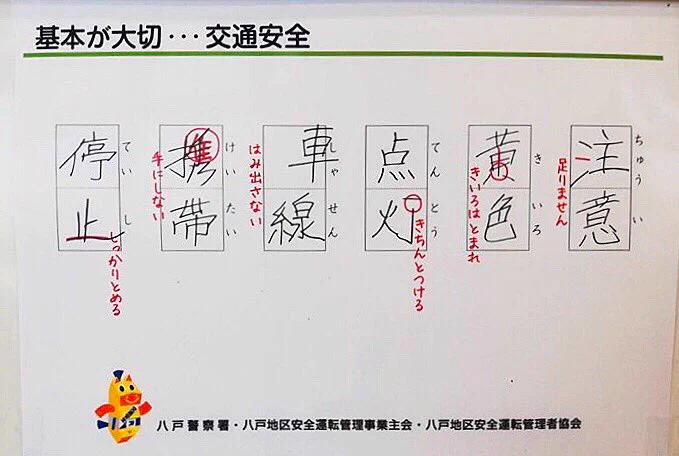 基本が大切・・・交通安全
注意
ちゅうい
足りません
黄色
きいろ
きいろはとまれ
点灯
てんとう
きちんとつける
車線
しゃせん
はみ出さない
携帯
けいたい
手にしない
停止
ていし
しっかりとめる
八戸警察署・八戸地区安全運転管理事業主会・八戸地区安全運転管理者協会